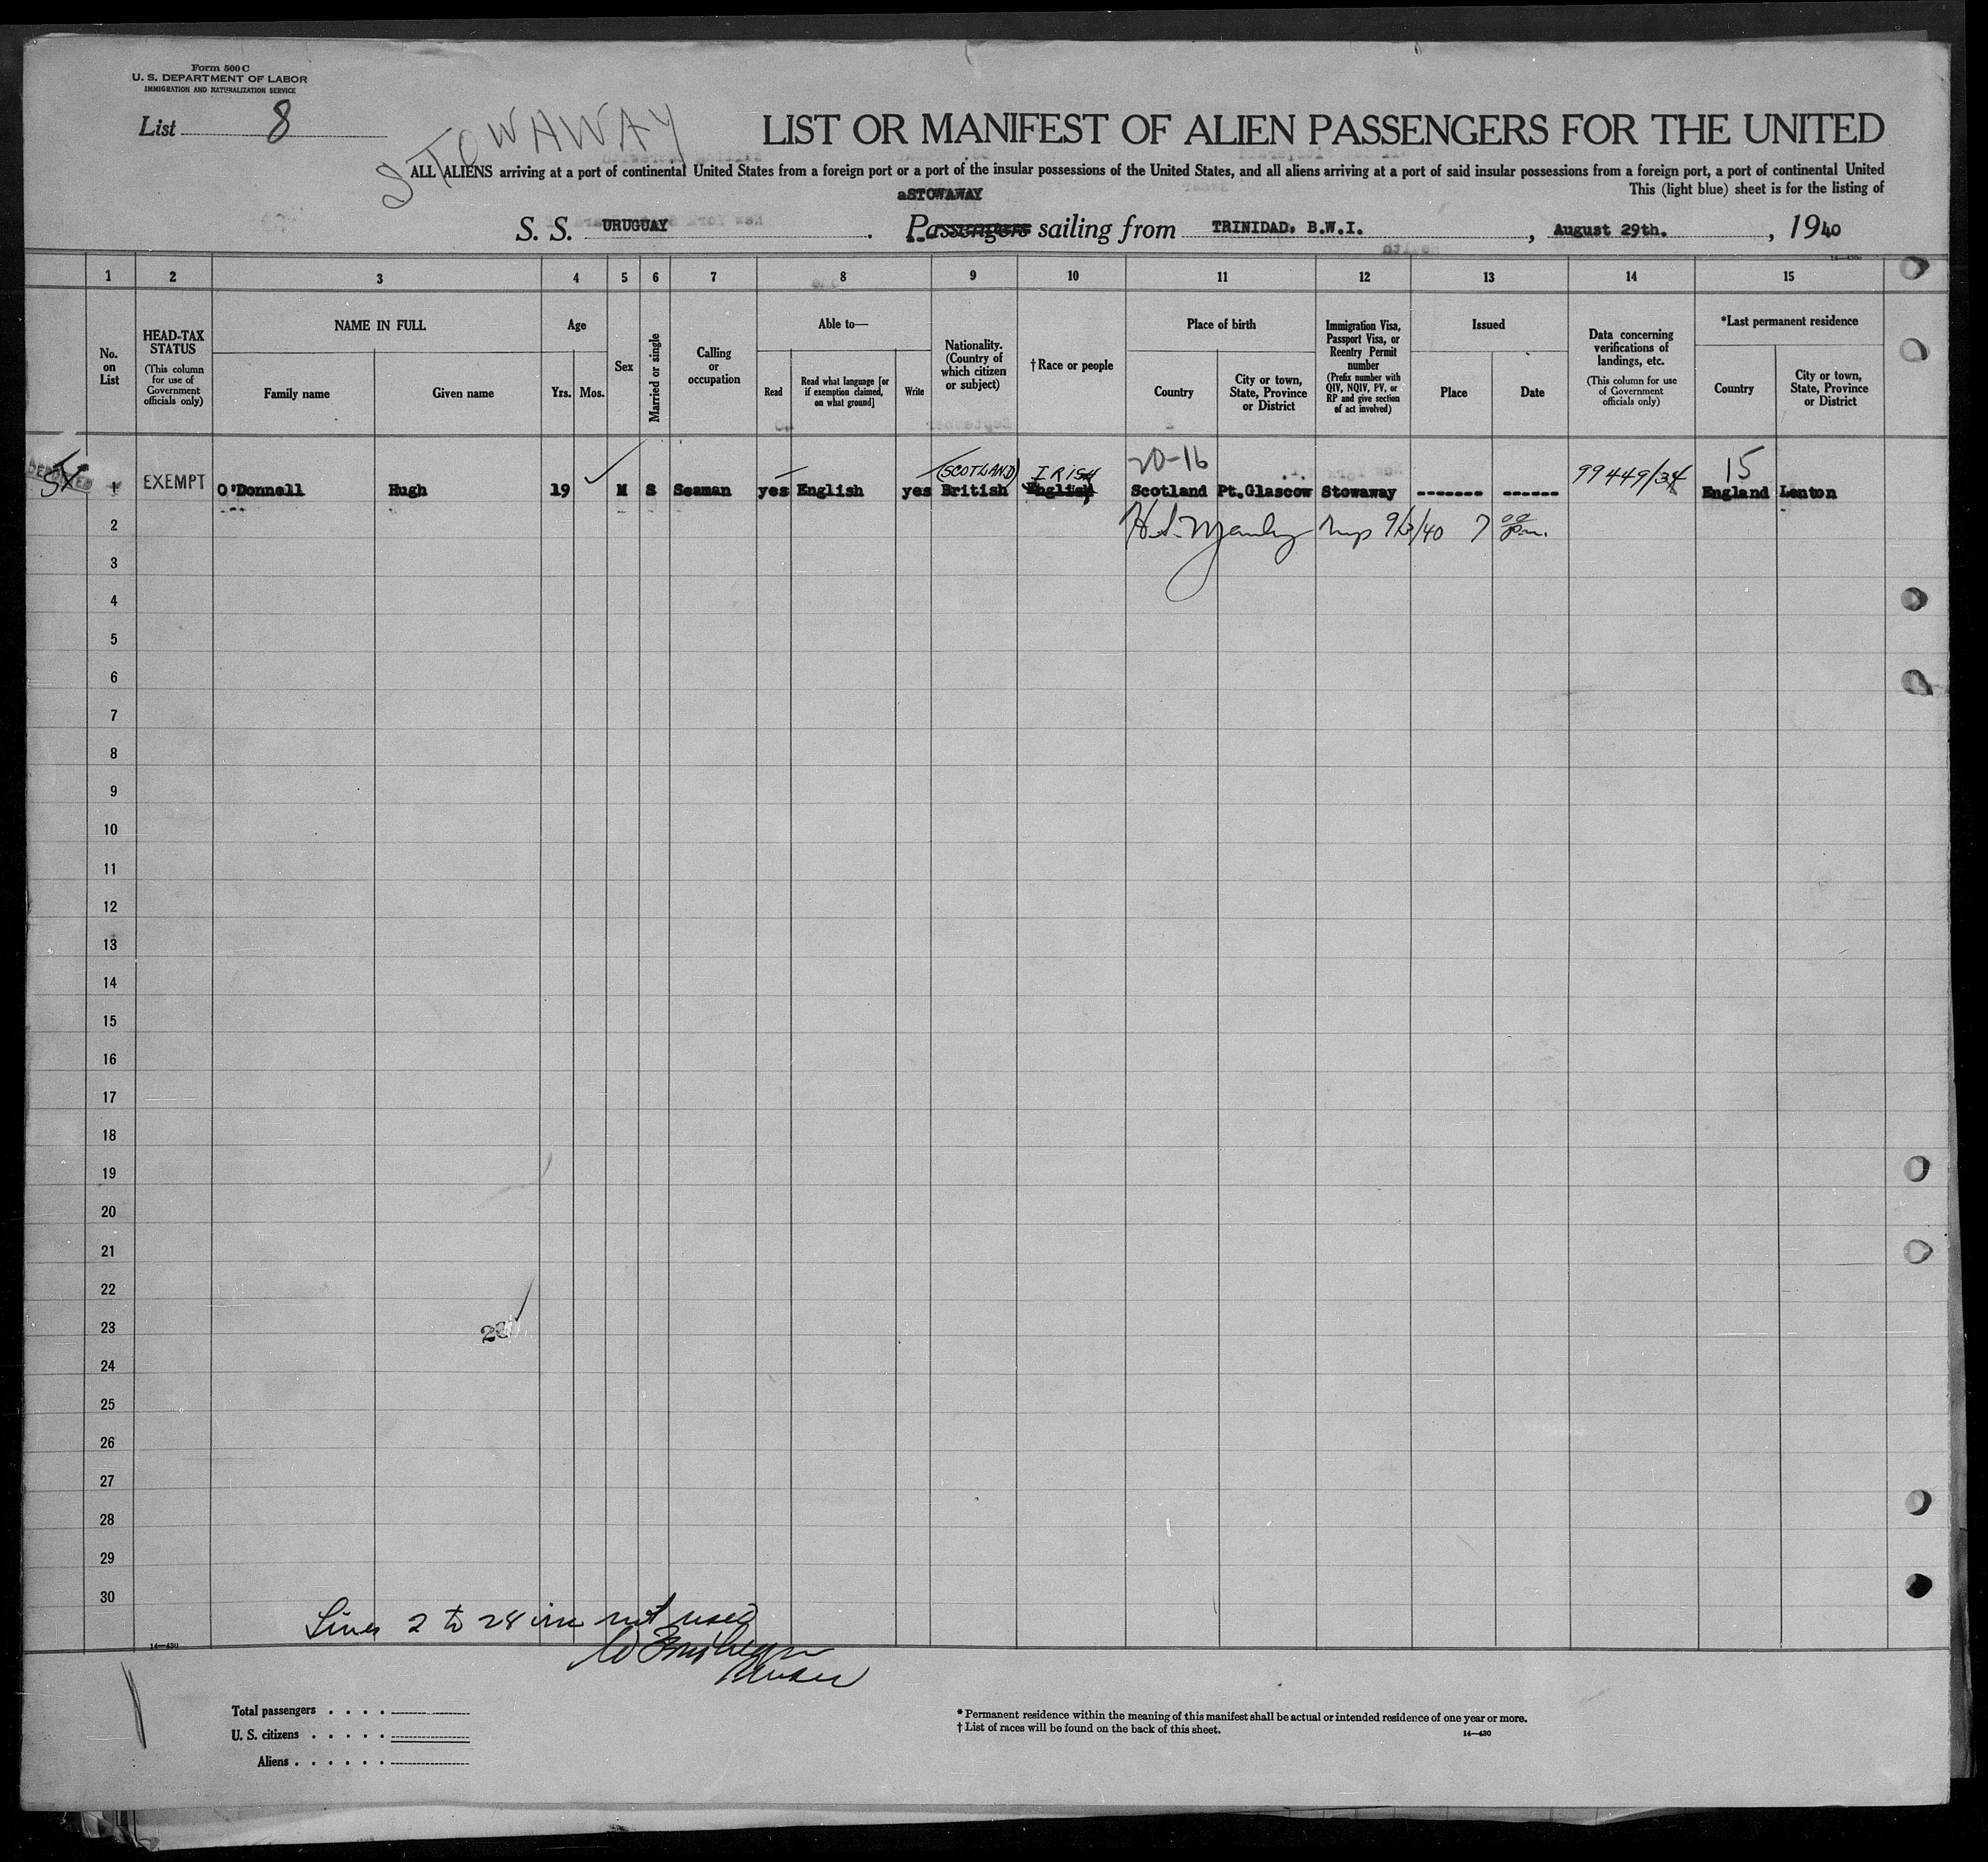 Form 500 C
U. S. DEPARTMENT OF LABOR
IMMIGRATION AND NATURALIZATION SERVICE
List 8
STOWAWAY
LIST OR MANIFEST OF ALIEN PASSENGERS FOR THE UNITED
ALL ALIENS arriving at a port of continental United States from a foreign port or a port of the insular possessions of the United States, and all aliens arriving at a port of said insular possessions from a foreign port, a port of continental United
This (light blue) sheet is for the listing of
aSTOWAWAY
S. S. URUGUAY . Passengers sailing from TRINIDAD, B.W.I. , August 29th. , 1940
1 2 3 4 5 6 7 8 9 10 11 12 13 14 15
No. on List
HEAD-TAX STATUS
(This column for use of Government officials only)
NAME IN FULL
Family name
Given name
Age
Yrs.
Mos.
Sex
Married or single
Calling or occupation
Able to—
Read
Read what language [or if exemption claimed, on what ground]
Write
Nationality. (Country of which citizen or subject)
† Race or people
Place of birth
Country
City or town, State, Province or District
Immigration Visa, Passport Visa, or Reentry Permit number
(Prefix number with QIV, NQIV, PV, or RP and give section of act involved)
Issued
Place
Date
Data concerning verifications of landings, etc.
(This column for use of Government officials only)
*Last permanent residence
Country
City or town, State, Province or District
(SCOTLAND) IRISH 20-16 99449/34 15
1 EXEMPT O'Donnell Hugh 19 M S Seaman yes English yes British English Scotland Pt.Glascow Stowaway ------- ------ England Lenton
2 9/3/40 7 00 p.m.
3
4
5
6
7
8
9
10
11
12
13
14
15
16
17
18
19
20
21
22
23
24
25
26
27
28
29
30
Lines 2 to 28 inc not used
14—430
Total passengers . . . .
U. S. citizens . . . . .
Aliens . . . . . .
* Permanent residence within the meaning of this manifest shall be actual or intended residence of one year or more.
† List of races will be found on the back of this sheet.
14—430